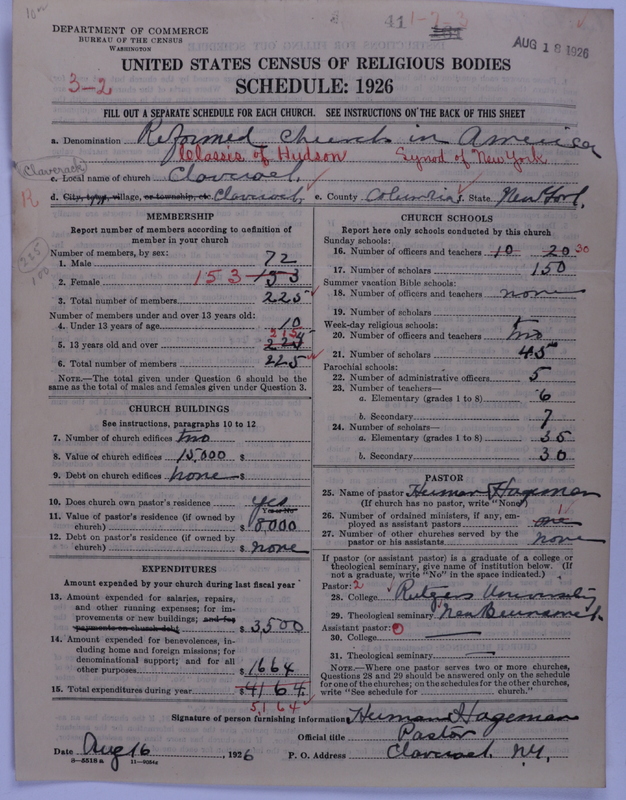 41 1-7-3
DEPARTMENT OF COMMERCE
BUREAU OF THE CENSUS
WASHINGTON
AUG 18 1926
UNITED STATES CENSUS OF RELIGIOUS BODIES
3-2
SCHEDULE: 1926
FILL OUT A SEPARATE SCHEDULE FOR EACH CHURCH. SEE INSTRUCTIONS ON THE BACK OF THIS SHEET
a. Denomination Reformed Church in America
Classis of Hudson Synod of New York
Claverack
c. Local name of church Claverack
R
d. City, town, village, or township, etc Claverack e. County Columbia f. State New York
MEMBERSHIP
Report number of members according to definition of
member in your church
225
100
Number of members, by sex:
1. Male 72
2. Female 153 153
3. Total number of members 225
Number of members under and over 13 years old:
4. Under 13 years of age 10
5. 13 years old and over 215
6. Total number of members 225
NOTE.—The total given under Question 6 should be the
same as the total of males and females given under Question 3.
CHURCH BUILDINGS
See instructions, paragraphs 10 to 12
7. Number of church edifices two
8. Value of church edifices 15,000 $
9. Debt on church edifices none $
10. Does church own pastor's residence yes
Yes or No
11. Value of pastor's residence (if owned by
church) $ 8000
12. Debt on pastor's residence (if owned by
church) $ none
EXPENDITURES
Amount expended by your church during last fiscal year
13. Amount expended for salaries, repairs,
and other running expenses; for im-
provements or new buildings; and for
payments on church debt $ 3,500
14. Amount expended for benevolences, in-
cluding home and foreign missions; for
denominational support; and for all
other purposes $ 1664
15. Total expenditures during year $ 4164
5,164
CHURCH SCHOOLS
Report here only schools conducted by this church
Sunday schools:
16. Number of officers and teachers 10 20 30
17. Number of scholars 150
Summer vacation Bible schools:
18. Number of officers and teachers none
19. Number of scholars
Week-day religious schools:
20. Number of officers and teachers two
21. Number of scholars 45
Parochial schools:
22. Number of administrative officers 5
23. Number of teachers—
a. Elementary (grades 1 to 8) 6
b. Secondary 7
24. Number of scholars—
a. Elementary (grades 1 to 8) 35
b. Secondary 30
PASTOR
25. Name of pastor Herman Hageman
(If church has no pastor, write "None")
26. Number of ordained ministers, if any, em-
ployed as assistant pastors one 1
27. Number of other churches served by the
pastor or his assistants none
If pastor (or assistant pastor) is a graduate of a college or
theological seminary, give name of institution below. (If
not a graduate, write "No" in the space indicated.)
Pastor: 2
28. College Rutgers University
29. Theological seminary New Brunswick
Assistant pastor: 0
30. College
31. Theological seminary
NOTE.—Where one pastor serves two or more churches,
Questions 28 and 29 should be answered only on the schedule
for one of the churches; on the schedules for the other churches,
write "See schedule for church."
Signature of person furnishing information Herman Hageman
Official title Pastor
Date Aug 16, 1926 P. O. Address Claverack N.Y.
8—5518 a 11—9054a